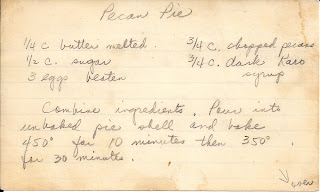 Pecan Pie
1/4 c. butter melted.
1/2 c. sugar
3 eggs beaten
3/4 c. chopped pecans
3/4 c. dark Karo
syrup
Combine ingredients. Pour into
unbaked pie shell and bake
450° for 10 minutes then 350°
for 30 minutes.
over